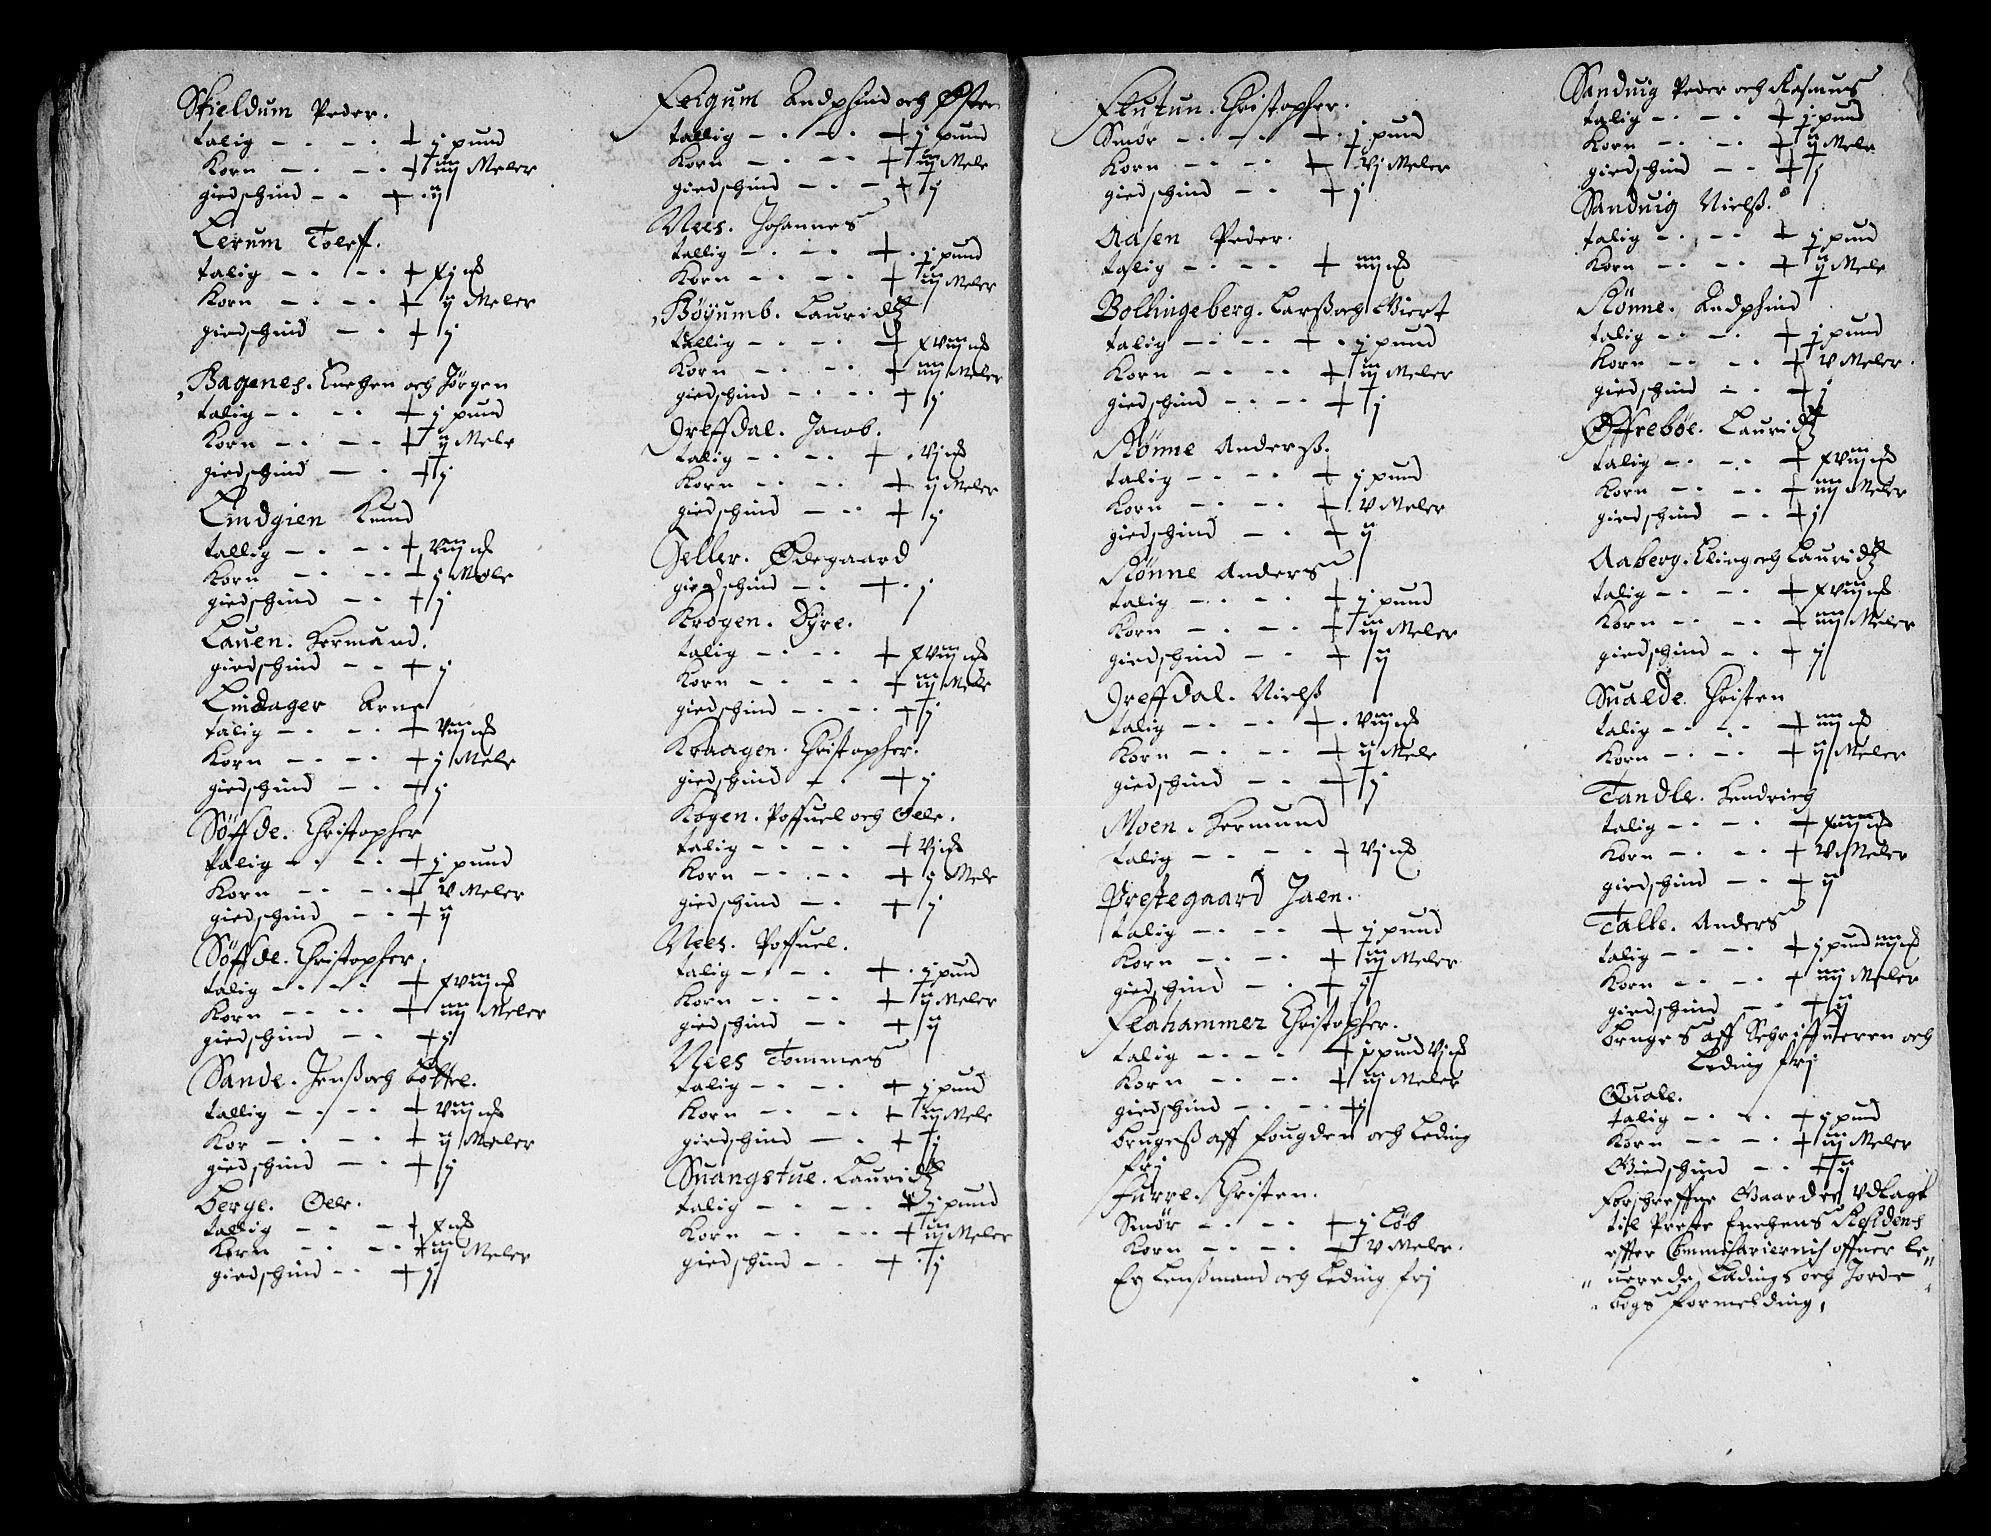 Skieldum Peder.
talig - . - . + j pund
Korn - . - . + iiij Meler
giedschind - . + ij
Lerum Toleff.
talig - . - . + xij mk
Korn - . - . + ij Meler
giedschind - . + j
Bagenes. Enchen och Jörgen
talig - . - . + j pund
Korn - . - . + ij Mele
giedschind - . + j
Lindgien Knud
tallig - . - . + viij mk
Korn - . - . + j Mele
giedschind - . + j
Lauen. Hermund.
giedschind - . + j
Lindager Arne
talig - . - . + viij mk
Korn - . - . + j Mele
giedschind - . + j
Söffde. Christopher
talig - . - . + j pund
Korn - . - . + v Meler
giedschind - . + ij
Söffde. Christopher.
talig - . - . + xviij mk
Korn - . - . + iiij Meler
giedschind - . + j
Sande. Jenß och Botte.
tallig - . - . + viij mk
Kor - . - . + ij Meler
giedschind - . + j
Berge. Oele.
tallig - . - + x mk
Korn - . - . + iij Meler
giedschind - . + j
Feigum Andphind och Østen
tallig - . - . + j pund
Korn - . - . + iij Mele
giedschind - . - + j
Nees. Johannes
tallig - . - . + . j pund
Korn - . - . + iij Meler
Böyumb. Lauridtz
tallig - . - . + xviij mk
Korn - . - . + iiij Meler
giedschind - . - . + j
Dreffdal. Jacob.
talig - . - . + . vj mk
Korn - . - . + ij Meler
giedschind - . . + j
Geller. Ødegaard
giedschind - . + . j
Krogen. Dyre.
talig - . - . + xviij mk
Korn - . - . + iiij Mele
giedschind - . - . + j
Kraagen. Christopher.
giedschind - . + j
Kogen. Poffuel och Oele.
talig - . - . + vj mk
Korn - . - . + j Mele
giedschind - . + j
Nees. Poffuel.
talig - . - . + . j pund
Korn - . - . + ij Meler
giedschind - . + ij
Nees Tommes
talig - . - . + j pund
Korn - . - . + iij Mele
giedschind - . + j
Suangstue. Lauridtz
talig - . - . + j pund
Korn - . - . + iij Meler
giedschind - . + . j
Flutun. Christopher.
Smör - . - . + . j pund
Korn - . - . + vj Meler
giedschind - . + j
Aasen Peder.
talig - . - . + iiij mk
Bollingeberg. Larß och Giert
talig - . - . + . j pund
Korn - . - . + iij Meler
giedschind - . - . + j
Rönne Anderß.
talig - . - . + j pund
Korn - . - . + . v Meler
giedschind - . + ij
Rönne Anders
talig - . - . + j pund
Korn - . - . + iij Meler
giedschind - . + ij
Dreffdal. Nielß
talig - . - . + . viij mk
Korn - . - . + ij Mele
giedschind - . + j
Moen. Hermund
talig - . - . + vj mk
Prestegaard Jaen.
talig - . - . + j pund
Korn - . - . + iij Meler
giedschind - . + j
Flahammer Christopher.
talig - . - . + j pund vj mk
Korn - . - . + iij Meler
giedschind - . - . + j
brugeß aff fougden och Leding
frj
Furre. Christen.
Smör - . - . + j Löb
Korn - . - . + v Meler.
Er Lenßmand och Leding frj
Sanduig Peder och Rasmus
talig - . - . + j pund
Korn - . - . + ij Mele
giedschind - . + j
Sanduig Nielß.
talig - . - . + j pund
Korn - . - . + ij Mele
Rönne. Andphind
talig - . - . + j pund
Korn - . - . + v Meler.
giedschind - . + j
Øffreböe. Lauridtz
talig - . - . + xviij mk
Korn - . - . + iiij Meler
giedschind - . + j
Aaberg. Elling och Lauridtz
talig - . - . + xviij mk
Korn - . - . + iiij Meler
giedschind - . + j
Sualde. Christen
talig - . - . + iiij mk
Korn - . - . + ij Meler
Tandle. Hendrich
talig - . - . + xiiij mk
Korn - . - . + v Meler
giedschind - . + ij
Talle. Anders
talig - . - . + j pund iiij mk
Korn - . - . + iiij Meler
giedschind - . + ij
bruges aff Schriffueren och
Leding frj
Quale.
talig - . - . + j pund
Korn - . - . + iij Meler
Giedschind - . + ij
Forschreffne Gaarder Vdlagt
til Preste Enchens Residens
effter Commissariernis offuer le-
uerede Ledings och Jorde-
bogs formelding,